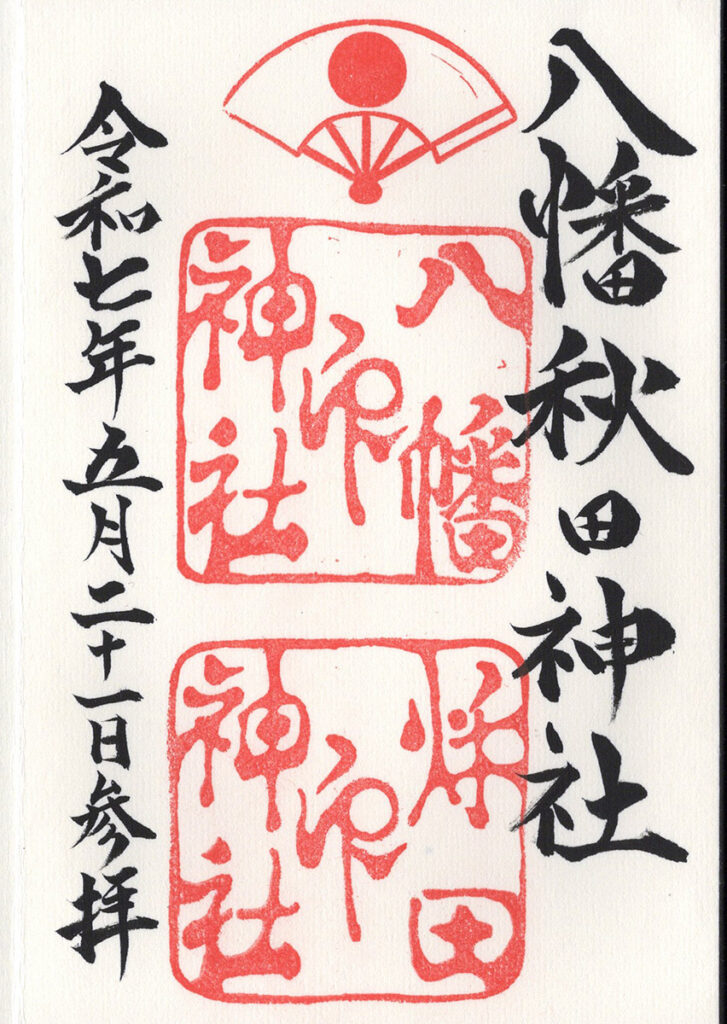 八幡秋田神社
八幡
印
神社
秋田
印
神社
令和七年五月二十一日参拝